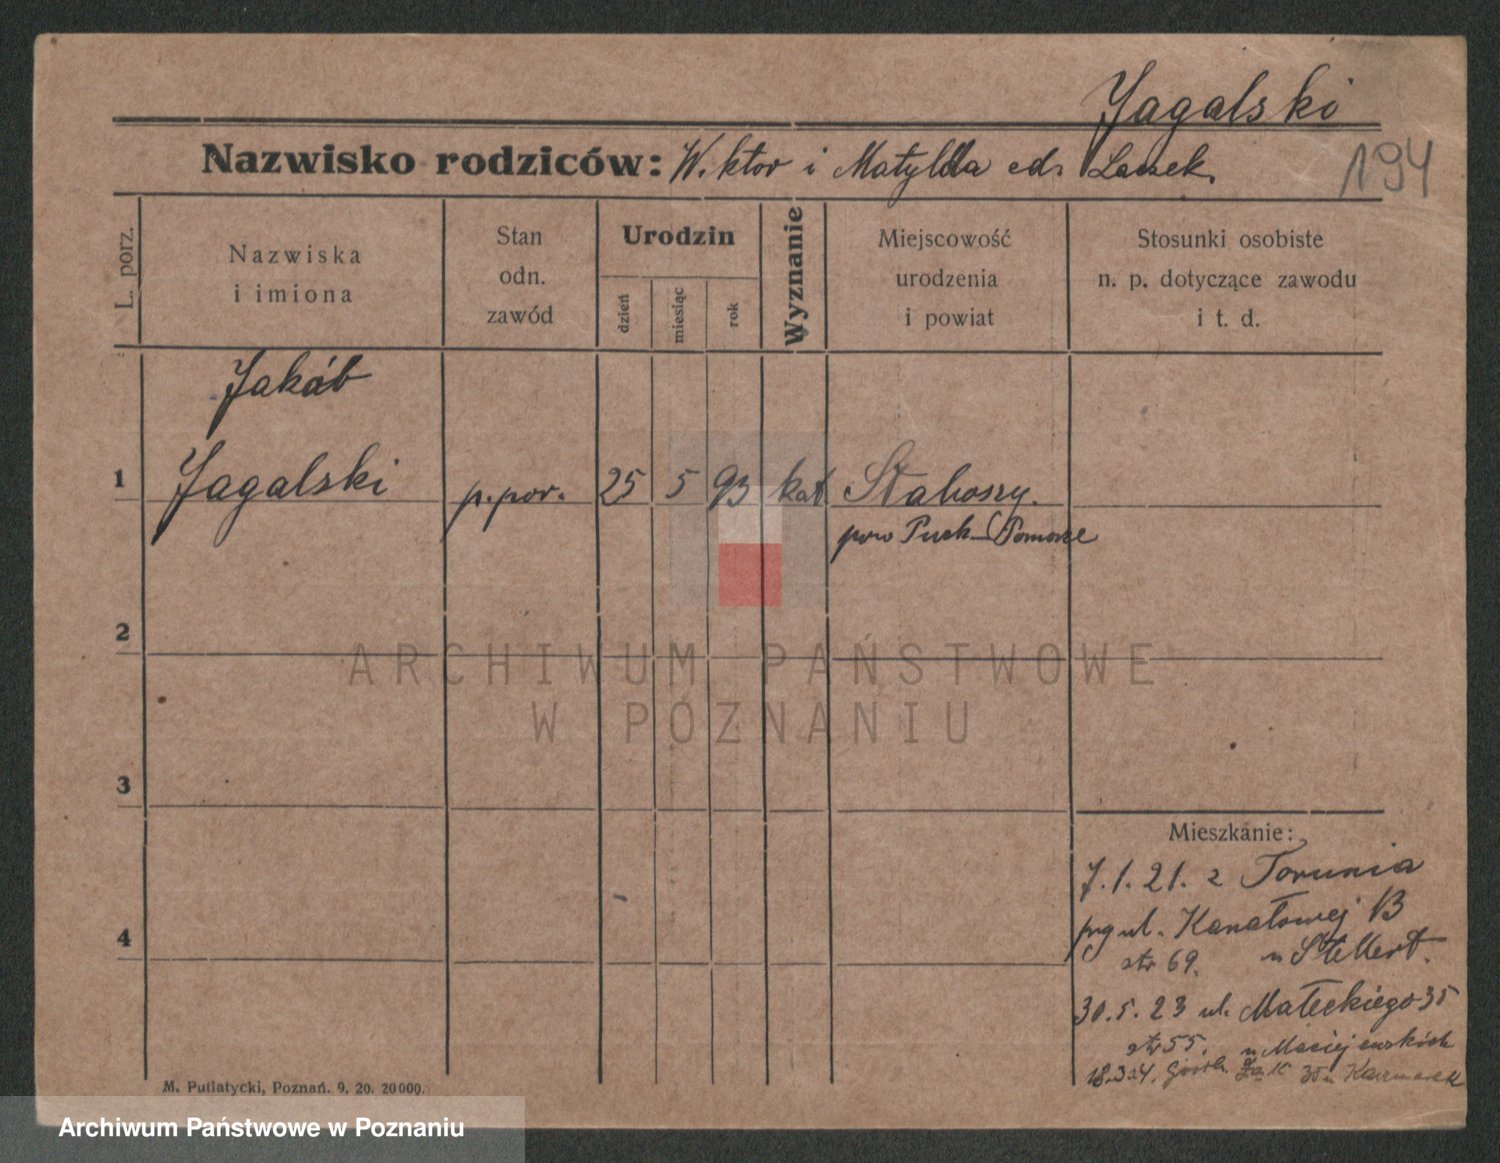 Jagalski
Nazwisko rodziców: Wiktor i Matylda
194
L. porz.
Nazwiska
i imiona
Stan
odn.
zawód
Urodzin
dzień
miesiąc
rok
Wyznanie
Miejscowość
urodzenia
i powiat
Stosunki osobiste
n. p. dotyczące zawodu
i t. d.
Jakób
1 Jagalski p.por. 25 5 93 kat
pow Puck Pomorze
2
ARCHIWUM PAŃSTWOWE
W POZNANIU
3
Mieszkanie:
7.1.21. z Torunia
ul. Kanałowej 13
str 69. u Stellert.
4
30.5.23 ul. Małeckiego 35
str 55. u Maciejewskich
18.3.24.
M. Putiatycki, Poznań. 9. 20. 20000.
Archiwum Państwowe w Poznaniu